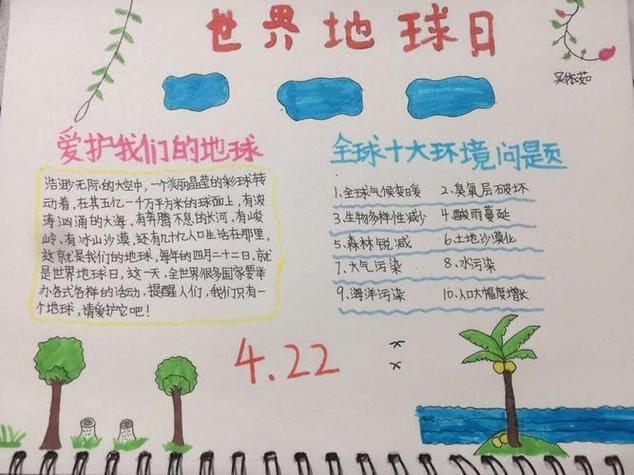 世界地球日
吴依茹
爱护我们的地球
浩渺无际的太空中,一个美丽晶莹的彩球转
动着,在其五亿一千万平方米的球面上,有波
涛汹涌的大海,有奔腾不息的长河,有山峻
岭,有冰山沙漠,还有几十亿人口生活在那里,
这就是我们的地球,每年的四月二十二日,就
是世界地球日,这一天,全世界很多国家要举
办各式各样的活动,提醒人们,我们只有一
个地球,请爱护它吧!
全球十大环境问题
1.全球气候变暖 2.臭氧层破坏
3.生物多样性减少 4.酸雨蔓延
5.森林锐减 6.土地沙漠化
7.大气污染 8.水污染
9.海洋污染 10.人口大幅度增长
4.22